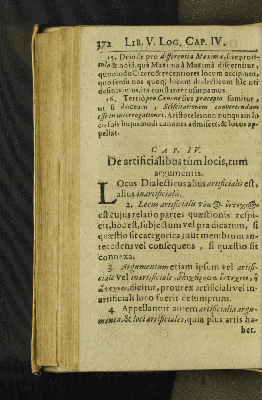 372 LIB. V. LOG. CAP. IV.
15. Deinde pro differentia Maxima, sive proti-
mâ & notâ, quâ Maxima à Maximâ discernitur,
quomodo Cicero & recentiores locum accipiunt,
quo sensu nos quoque locum dialecticum hîc uti
definivimus, ita constanter usurpamus.
16. Tertiò pro Canone sive præcepto sumitur,
ut si doceam, Sciscitationem convertendam
esse in interrogationem. Aristoteles non nunquam lo-
cis suis hujusmodi canones admiscet, & locos ap-
pellat.
CAP. IV.
De artificialibus tùm locis, tum
argumentis.
LOcus Dialecticus alius artificialis est,
alius inartificialis.
2. Locus artificialis
est cujus relatio partes quæstionis respi-
cit, hoc est, subjectum vel prædicatum, si
quæstio sit categorica; aut membrum an-
tecedens vel consequens, si quæstio sit
connexa.
3. Argumentum etiam ipsum vel artifi-
ciale vel inartificiale
dicitur, prout ex artificiali vel in-
artificiali loco fuerit desumptum.
4. Appellantur autem artificialia argu-
menta, & loci artificiales, quia plus artis ha-
bet.